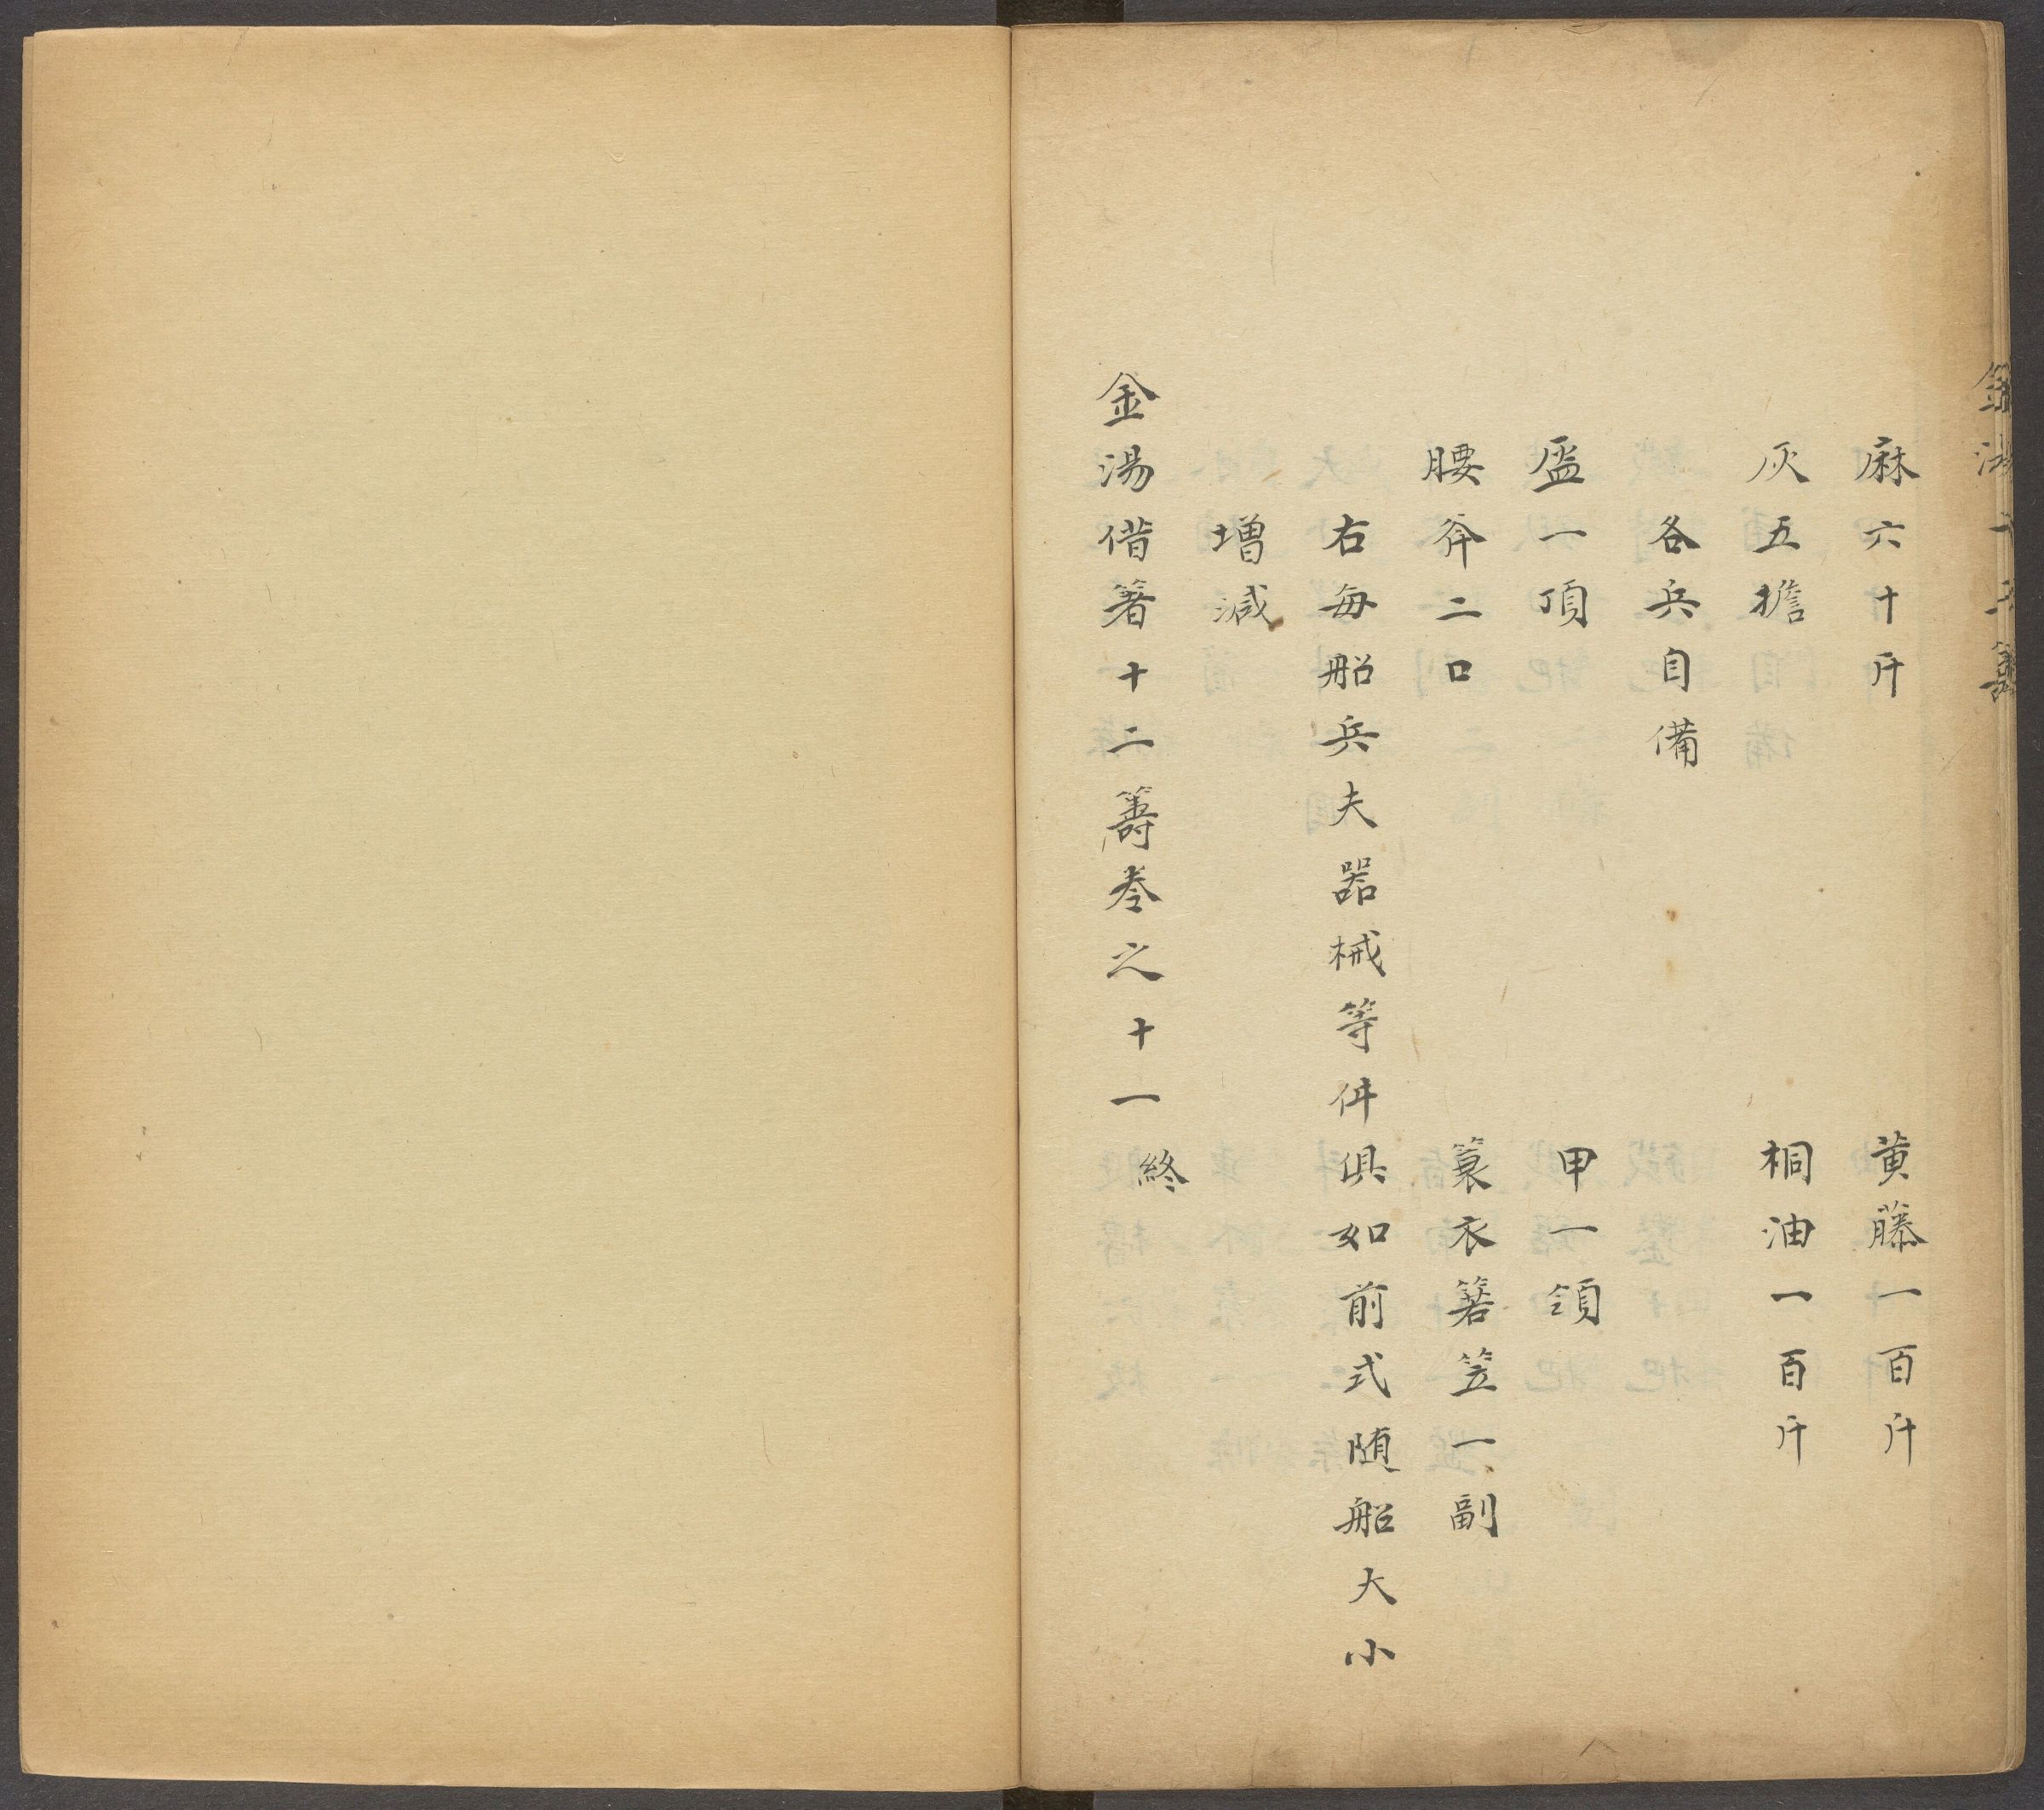 金湯十二籌
麻六十斤 黄藤一百斤
灰五擔 桐油一百斤
各兵自備
盔一頂 甲一領
腰斧二口 簑衣箬笠一副
右每船兵夫器械等件俱如前式随船大小
增減
金湯借箸十二籌卷之十一 終